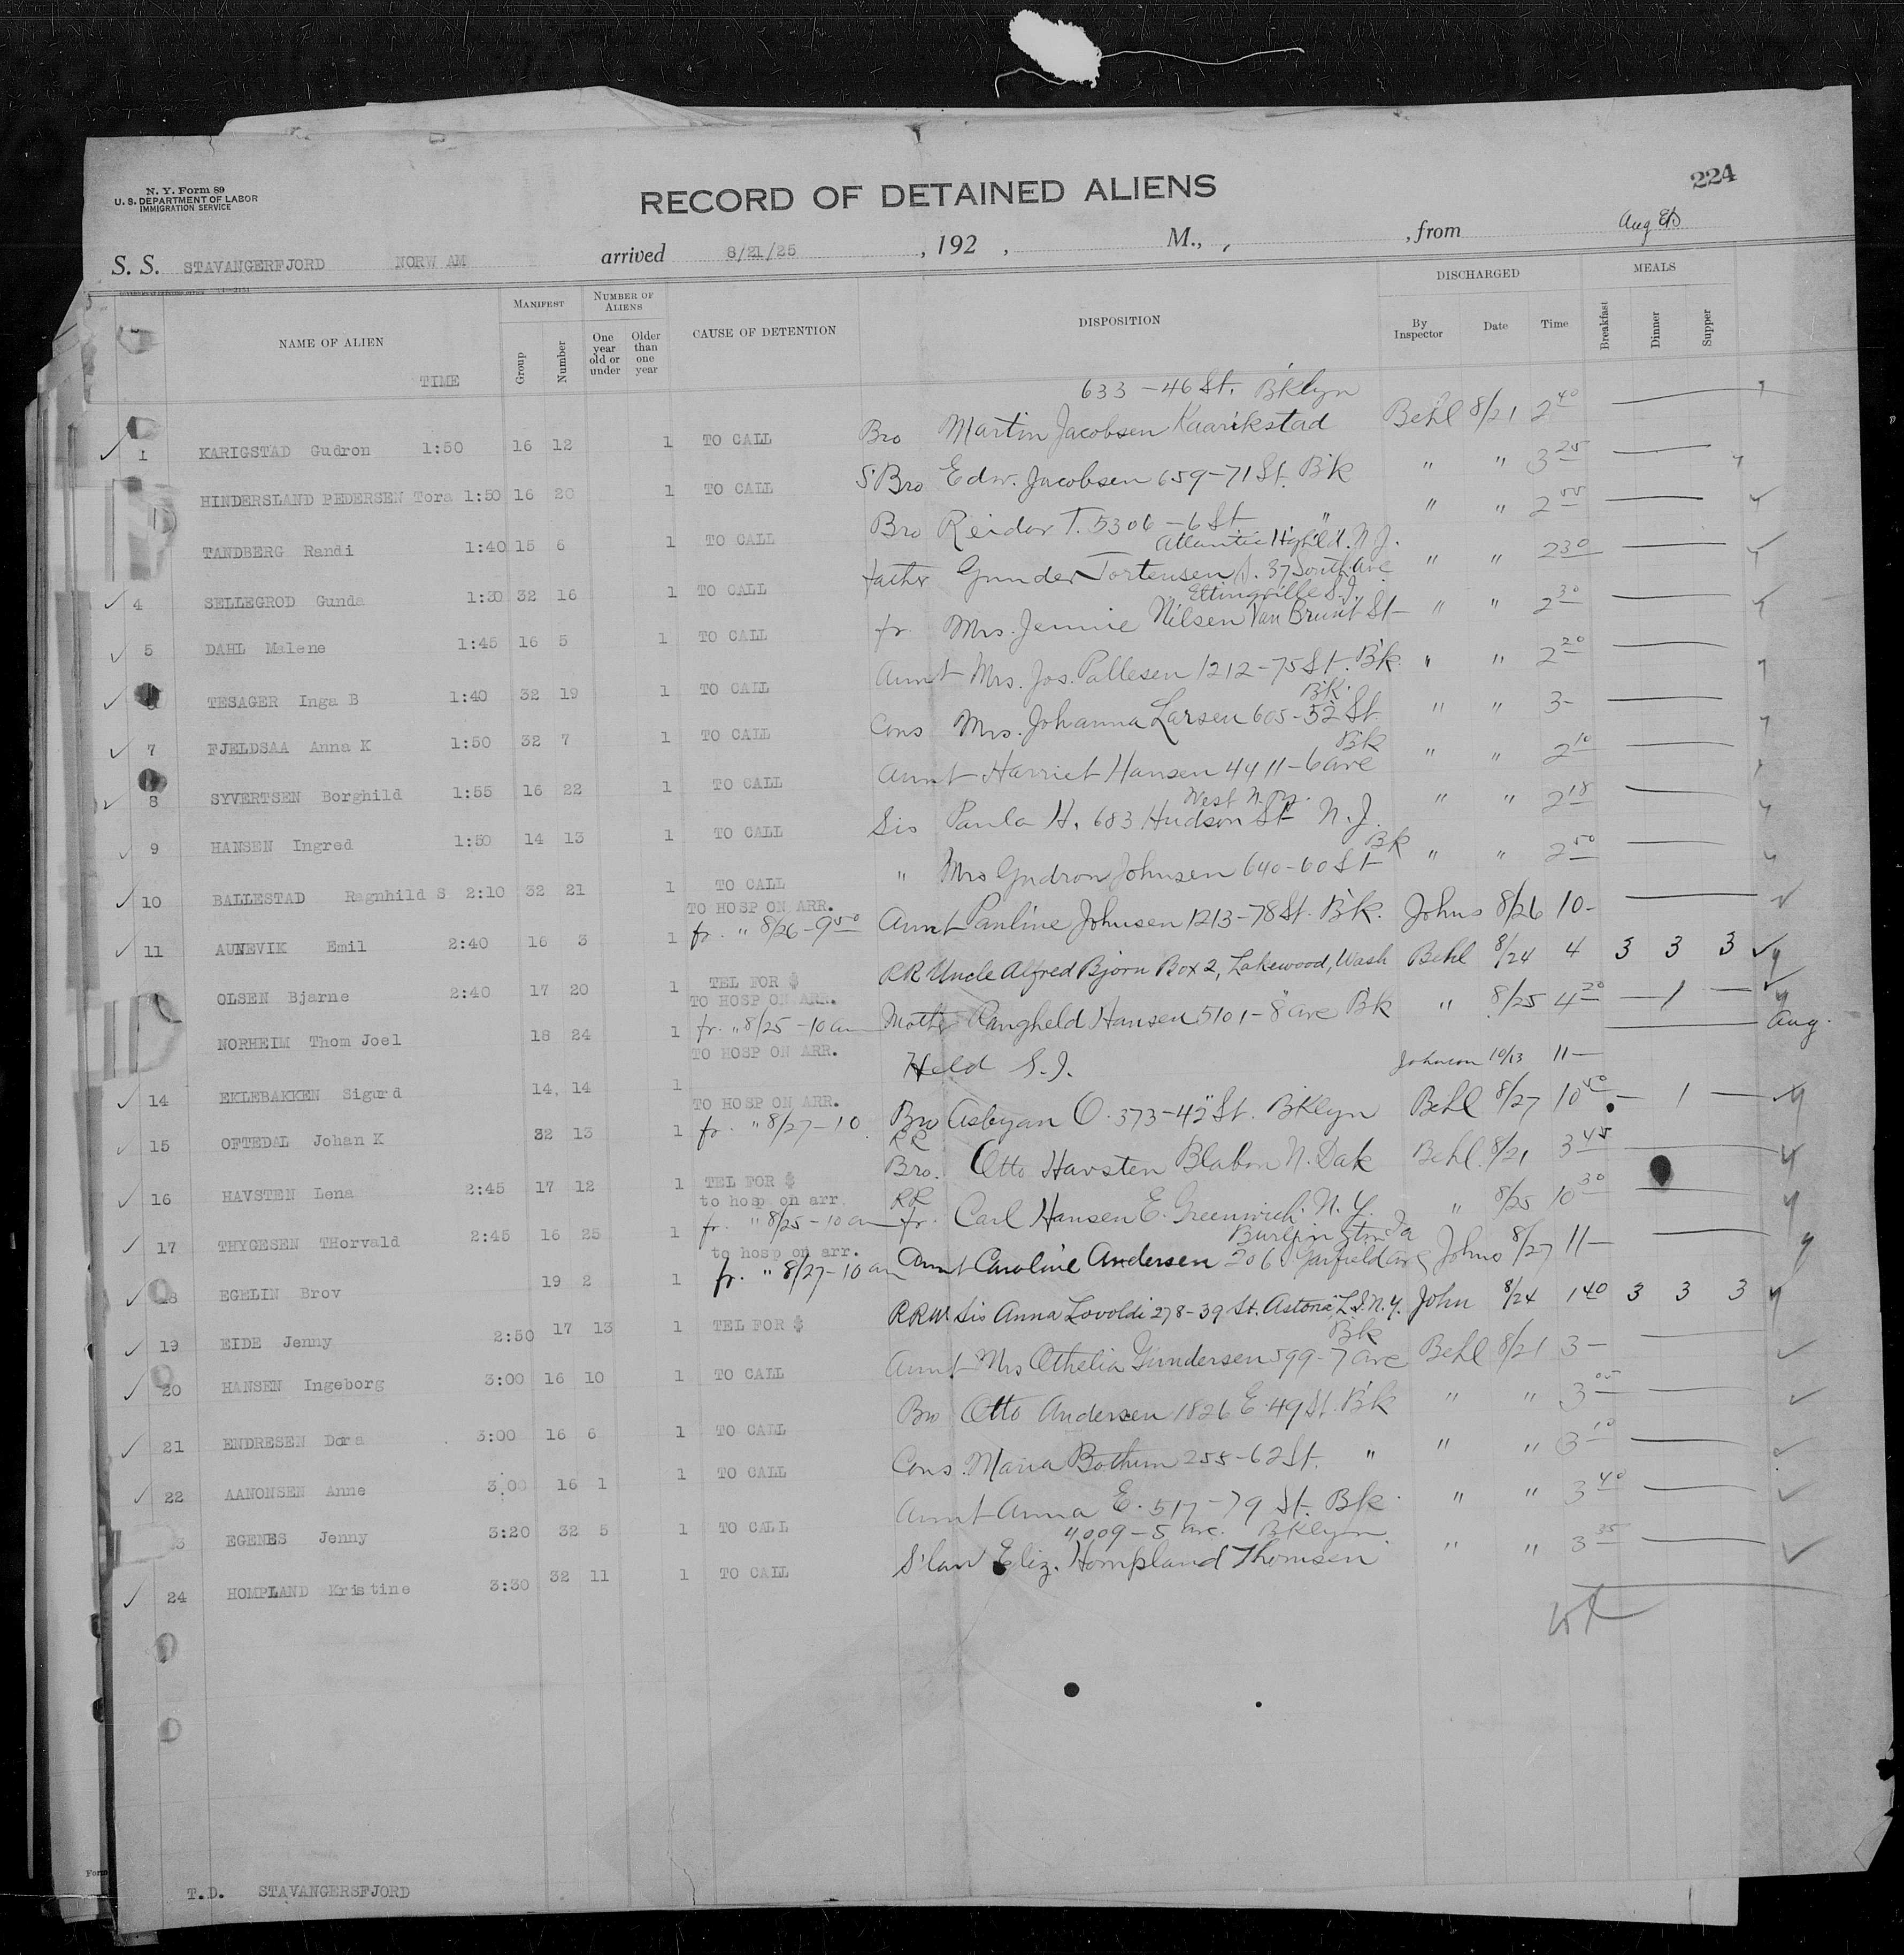 224
N. Y. Form 89
U. S. DEPARTMENT OF LABOR
IMMIGRATION SERVICE
RECORD OF DETAINED ALIENS
S. S. STAVANGERFJORD NORW AM arrived 8/21/25, 192 , M., , from Aug
NAME OF ALIEN TIME MANIFEST Group Number NUMBER OF ALIENS One year old or under Older than one year CAUSE OF DETENTION DISPOSITION DISCHARGED By Inspector Date Time MEALS Breakfast Dinner Supper
633-46 St. B'klyn
1 KARIGSTAD Gudron 1:50 16 12 1 TO CALL Bro Martin Jacobsen Kaarikstad Behl 8/21 2 40
HINDERSLAND PEDERSEN Tora 1:50 16 20 1 TO CALL S'Bro Edw. Jacobsen 659-71 St. B'k " " 3 25
TANDBERG Randi 1:40 15 6 1 TO CALL Bro Reidar T. 5306-6 St " " " 2 55
Atlantic Highld. N.J.
4 SELLEGROD Gunda 1:30 32 16 1 TO CALL father Gunder Tortensen 37 South Ave " " 2 30
Ettingville S.I.
5 DAHL Malene 1:45 16 5 1 TO CALL fr. Mrs. Jennie Nilsen Van Brunt St " " 2 30
TESAGER Inga B 1:40 32 19 1 TO CALL Aunt Mrs. Jos. Pallesen 1212-75 St. B'k " " 2 20
B'k.
7 FJELDSAA Anna K 1:50 32 7 1 TO CALL Cons Mrs. Johanna Larsen 605-52 St. " " 3-
B'k
8 SYVERTSEN Borghild 1:55 16 22 1 TO CALL Aunt Harriet Hansen 4411-6 Ave " " 2 10
West N.Y.
9 HANSEN Ingred 1:50 14 13 1 TO CALL Sis Paula H. 683 Hudson St N.J. " " 2 18
Bk
10 BALLESTAD Ragnhild S 2:10 32 21 1 TO CALL " Mrs Gudron Johnsen 640-60 St " " 2 50
TO HOSP ON ARR.
11 AUNEVIK Emil 2:40 16 3 1 fr. " 8/26-9 50 Aunt Pauline Johnsen 1213-78 St. B'k. Johns 8/26 10-
OLSEN Bjarne 2:40 17 20 1 TEL FOR $ RR Uncle Alfred Bjorn Box 2, Lakewood, Wash Behl 8/24 4 3 3 3
TO HOSP ON ARR.
NORHEIM Thom Joel 18 24 1 fr. " 8/25-10 am Mother Rangheld Hansen 5101-8 Ave B'k " 8/25 4 20 — 1 —
Aug.
TO HOSP ON ARR.
14 EKLEBAKKEN Sigurd 14 14 1 Held S.I. Johnson 10/13 11-
TO HOSP ON ARR.
15 OFTEDAL Johan K 32 13 1 fr. " 8/27-10 Bro Asbyan O. 373-42 St. B'klyn Behl 8/27 10 50 — 1 —
RR
16 HAVSTEN Lena 2:45 17 12 1 TEL FOR $ Bro. Otto Havsten Blabon N. Dak Behl 8/21 3 45
to hosp on arr. RR
17 THYGESEN THorvald 2:45 16 25 1 fr. " 8/25-10 am fr. Carl Hansen E. Greenwich N.Y. " 8/25 10 30
to hosp on arr. Burlington Ia
18 EGELIN Brov 19 2 1 fr. " 8/27-10 am Aunt Caroline Andersen 206 Garfield Ave Johns 8/27 11-
19 EIDE Jenny 2:50 17 13 1 TEL FOR $ RRW Sis Anna Lovoldi 278-39 St. Astoria, L.I. N.Y. John 8/24 1 40 3 3 3
Bk
20 HANSEN Ingeborg 3:00 16 10 1 TO CALL Aunt Mrs Othelia Gundersen 599-7 Ave Behl 8/21 3-
21 ENDRESEN Dora 3:00 16 6 1 TO CALL Bro Otto Andersen 1826 E. 49 St. B'k " " 3 05
22 AANONSEN Anne 3:00 16 1 1 TO CALL Cons. Maria Bothum 255-62 St. " " " 3 10
EGENES Jenny 3:20 32 5 1 TO CALL Aunt Anna E. 517-79 St. Bk. " " 3 40
4009-5 Ave. B'klyn
24 HOMPLAND Kristine 3:30 32 11 1 TO CALL S'law Eliz. Hompland Thomsen " " 3 35
T.D. STAVANGERSFJORD
Form